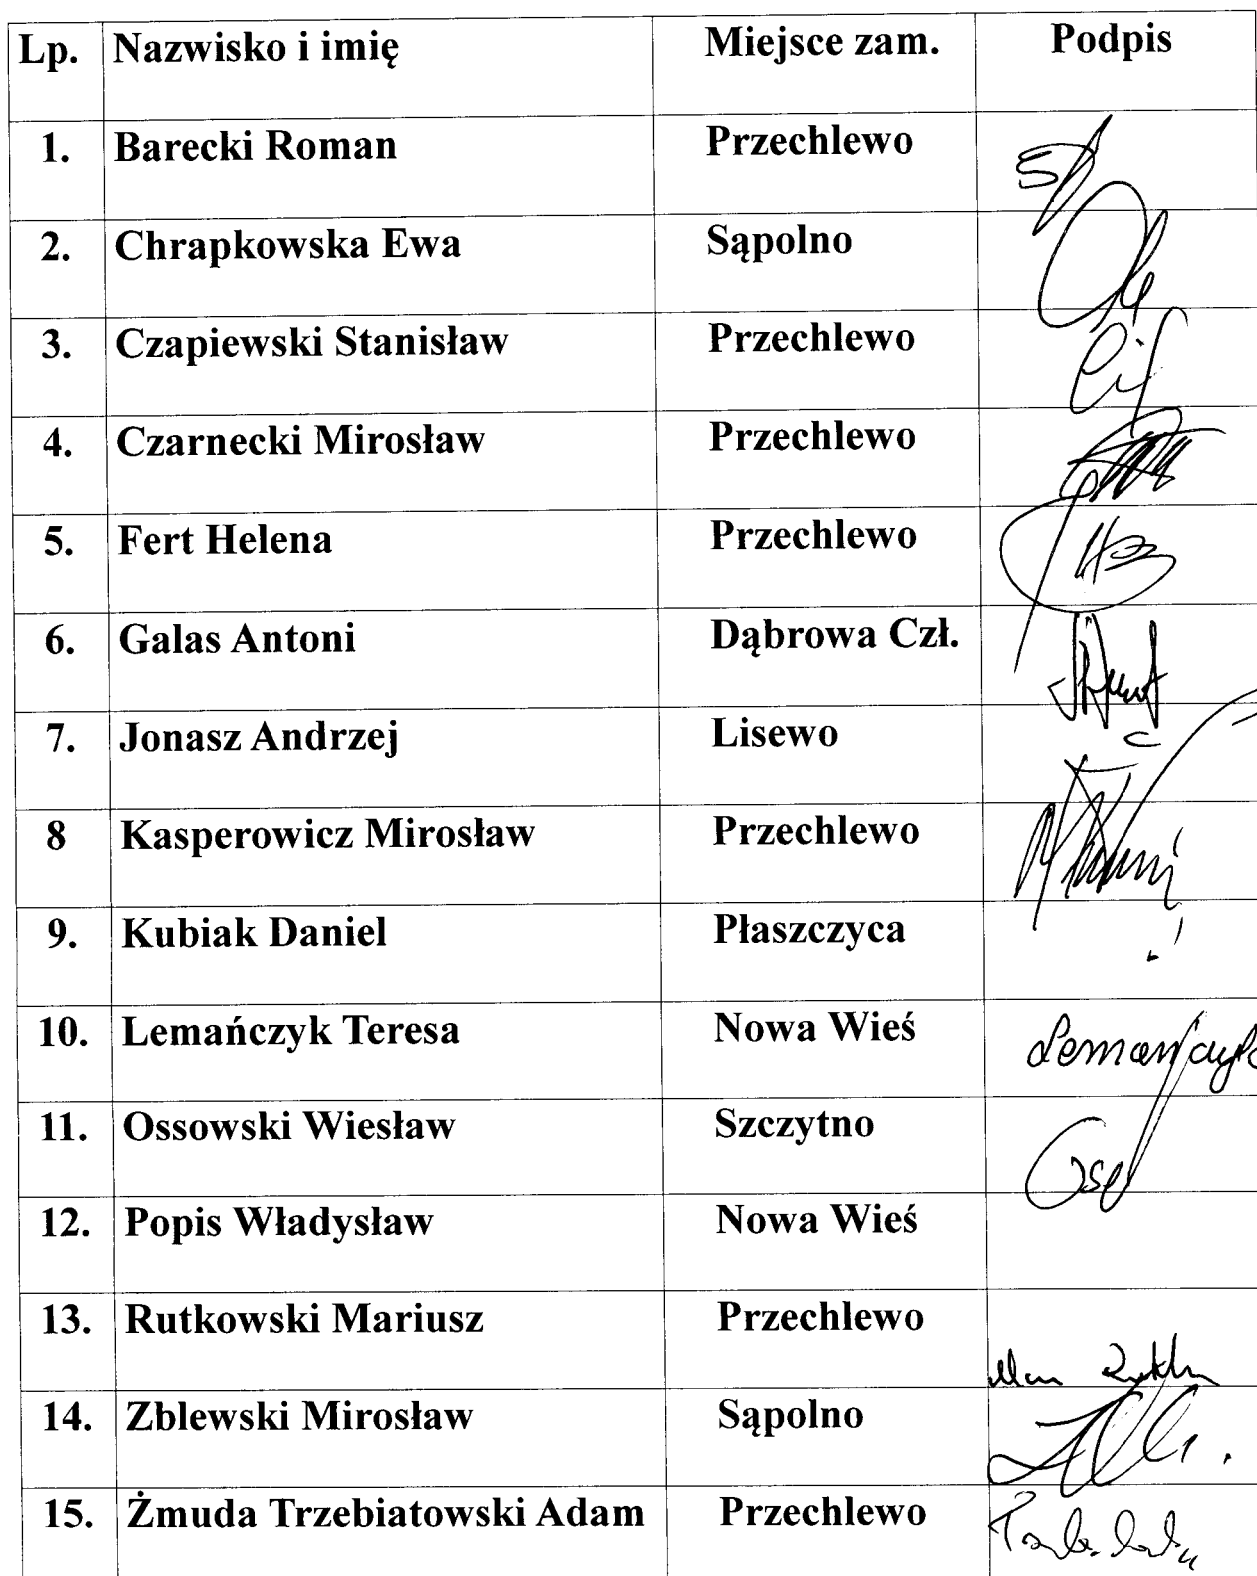 Lp. Nazwisko i imię Miejsce zam. Podpis
1. Barecki Roman Przechlewo
2. Chrapkowska Ewa Sąpolno
3. Czapiewski Stanisław Przechlewo
4. Czarnecki Mirosław Przechlewo
5. Fert Helena Przechlewo
6. Galas Antoni Dąbrowa Czł.
7. Jonasz Andrzej Lisewo
8 Kasperowicz Mirosław Przechlewo
9. Kubiak Daniel Płaszczyca
10. Lemańczyk Teresa Nowa Wieś Lemańczyk
11. Ossowski Wiesław Szczytno
12. Popis Władysław Nowa Wieś
13. Rutkowski Mariusz Przechlewo
14. Zblewski Mirosław Sąpolno
15. Żmuda Trzebiatowski Adam Przechlewo